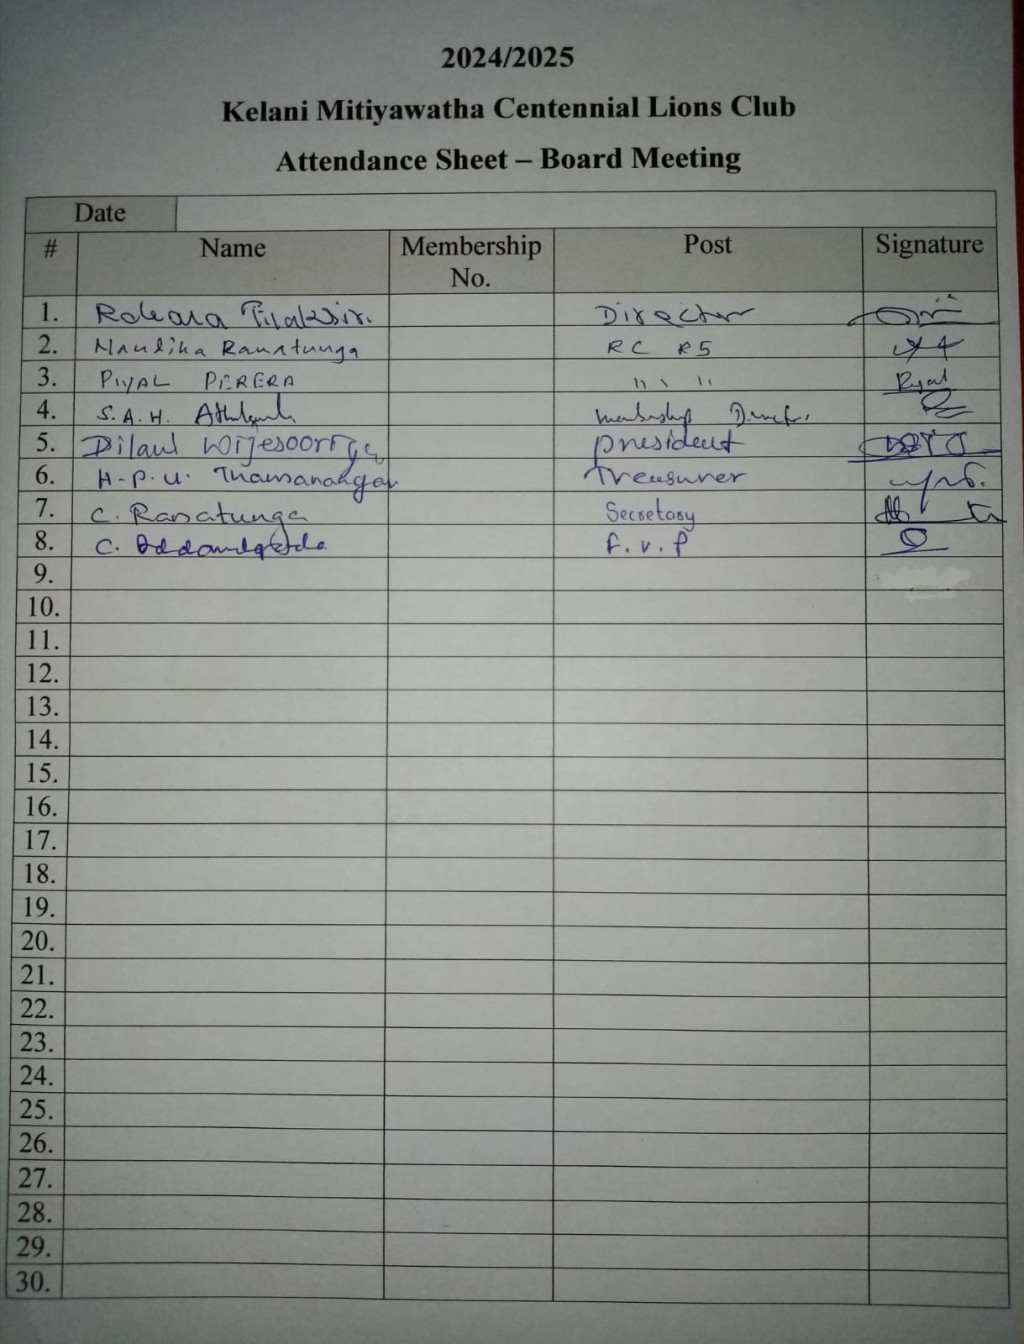 2024/2025
Kelani Mitiyawatha Centennial Lions Club
Attendance Sheet – Board Meeting
Date
# Name Membership No. Post Signature
1. Director
2. Nandika Ranatunga RC R5
3. PIYAL PERERA " " Piyal
4. S.A.H. Membership
5. President
6. H.P.U. Treasurer
7. C. Ranatunga Secretary
8. C. F.V.P
9.
10.
11.
12.
13.
14.
15.
16.
17.
18.
19.
20.
21.
22.
23.
24.
25.
26.
27.
28.
29.
30.